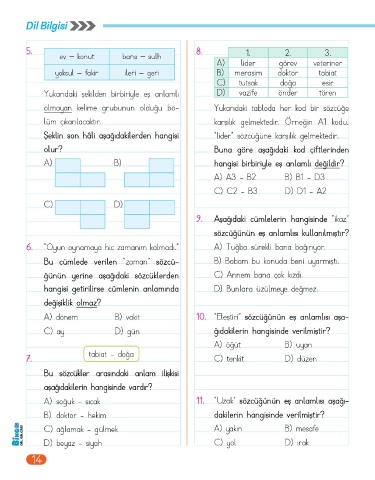 Dil Bilgisi
5.
ev – konut
barış – sulh
yoksul – fakir
ileri – geri
Yukarıdaki şekilden birbiriyle eş anlamlı
olmayan kelime grubunun olduğu bö-
lüm çıkarılacaktır.
Şeklin son hâli aşağıdakilerden hangisi
olur?
A)
B)
C)
D)
6. "Oyun oynamaya hiç zamanım kalmadı."
Bu cümlede verilen "zaman" sözcü-
ğünün yerine aşağıdaki sözcüklerden
hangisi getirilirse cümlenin anlamında
değişiklik olmaz?
A) dönem B) vakit
C) ay D) gün
7.
tabiat – doğa
Bu sözcükler arasındaki anlam ilişkisi
aşağıdakilerin hangisinde vardır?
A) soğuk – sıcak
B) doktor – hekim
C) ağlamak – gülmek
D) beyaz – siyah
14
8.
1. 2. 3.
A) lider görev veteriner
B) merasim doktor tabiat
C) tutsak doğa esir
D) vazife önder tören
Yukarıdaki tabloda her kod bir sözcüğe
karşılık gelmektedir. Örneğin A1 kodu,
"lider" sözcüğüne karşılık gelmektedir.
Buna göre aşağıdaki kod çiftlerinden
hangisi birbiriyle eş anlamlı değildir?
A) A3 – B2 B) B1 – D3
C) C2 – B3 D) D1 – A2
9. Aşağıdaki cümlelerin hangisinde "ikaz"
sözcüğünün eş anlamlısı kullanılmıştır?
A) Tuğba sürekli bana bağırıyor.
B) Babam bu konuda beni uyarmıştı.
C) Annem bana çok kızdı.
D) Bunlara üzülmeye değmez.
10. "Eleştiri" sözcüğünün eş anlamlısı aşa-
ğıdakilerin hangisinde verilmiştir?
A) öğüt B) uyarı
C) tenkit D) düzen
11. "Uzak" sözcüğünün eş anlamlısı aşağı-
dakilerin hangisinde verilmiştir?
A) yakın B) mesafe
C) yol D) ırak